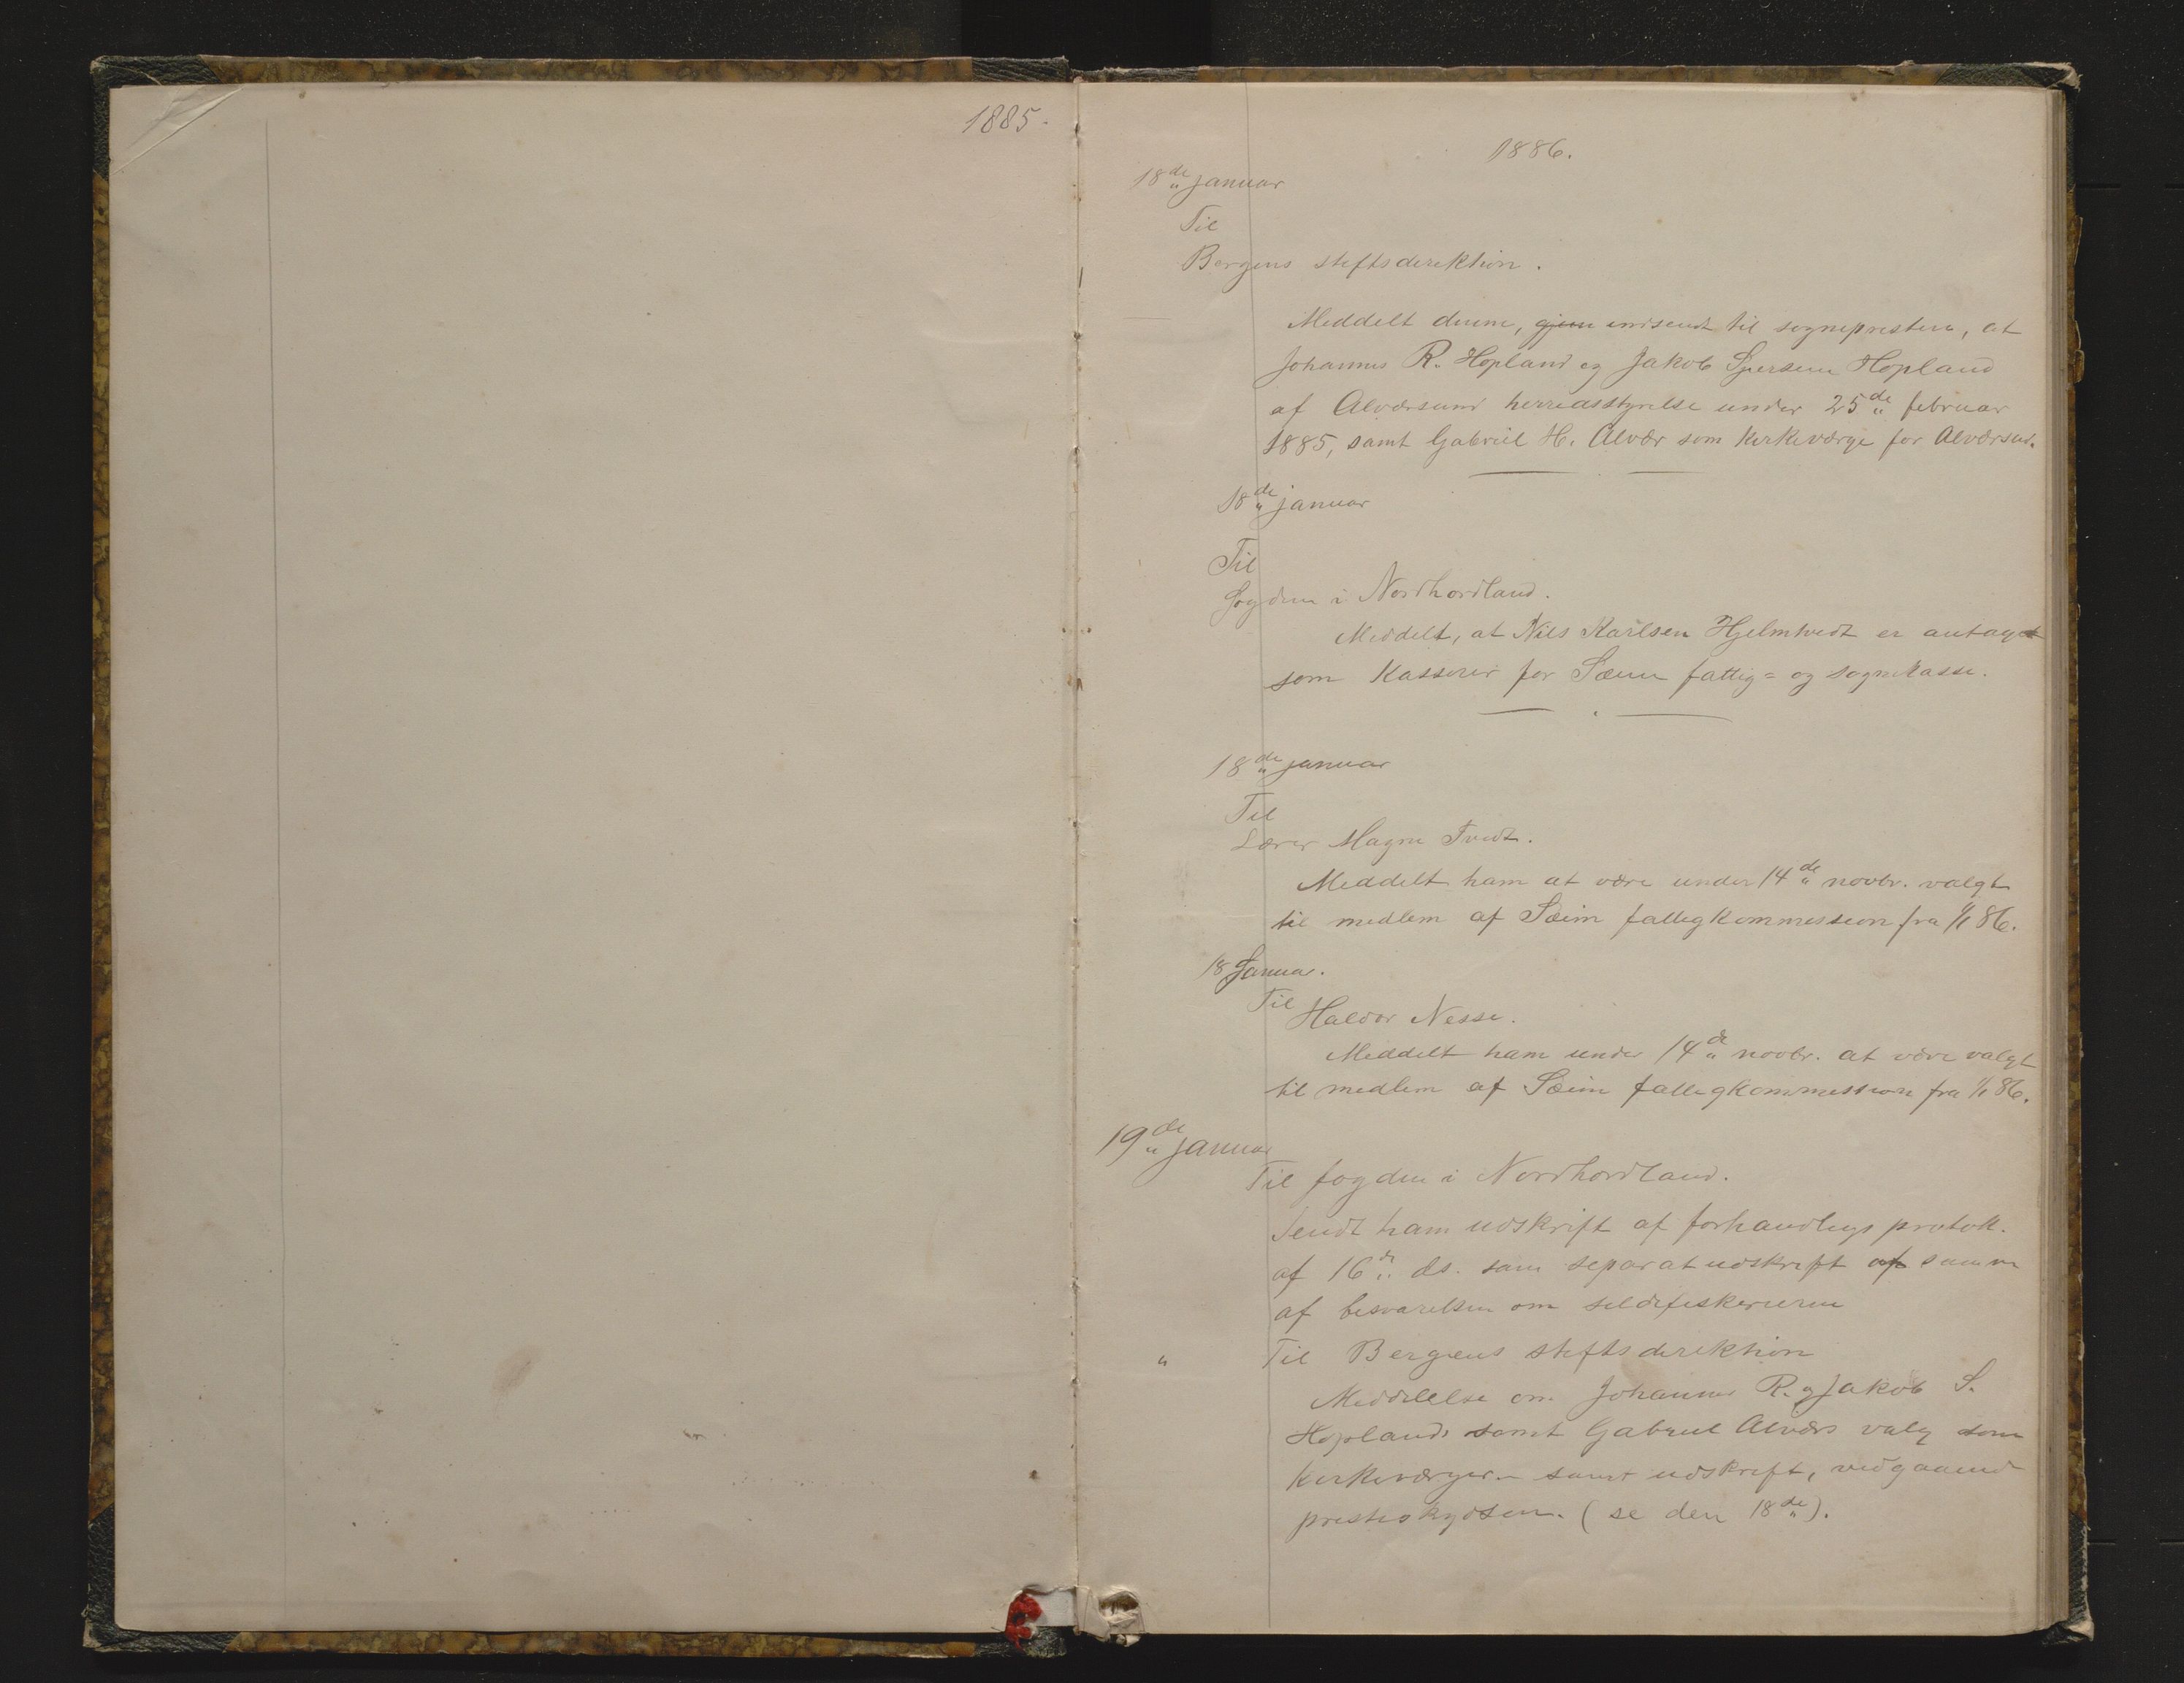 1885.
1886.
18de januar
Til
Bergens stiftsdirektion.
Meddelt denne, gjen indsendt til sognepresten, at
Johannes R. Hopland og Jakob Sjursen Hopland
af Alværsund herredsstyrelse under 25de februar
1885, samt Gabriel H. Alvær som kirkeværge for Alværsu.
18de januar
Til
Fogden i Nordhordland.
Meddelt, at Nils Karlsen Hjelmtvedt er antaget
som kasserer for Sæim fattig= og sognekasse.
18de januar
Til
Lærer Magne Tvedt.
Meddelt ham at være under 14de novbr. valgt
til medlem af Sæim fattigkommission fra 1/1 86.
18 Januar.
Til
Haldor Nesse.
Meddelt ham under 14de novbr. at være valgt
til medlem af Sæim fattigkommission fra 1/1 86.
19de januar
Til fogden i Nordhordland.
Sendt ham udskrift af forhandlings protok.
af 16de ds. sam separatudskrift af samme
af besvarelsen om sildefiskerierne
" Til Bergens stiftsdirektion
Meddelelse om Johannes R. og Jakob S.
Hoplands samt Gabriel Alværs valg som
kirkeværger - samt udskrift, vedgaaende
presteskydsen. (se den 18de).